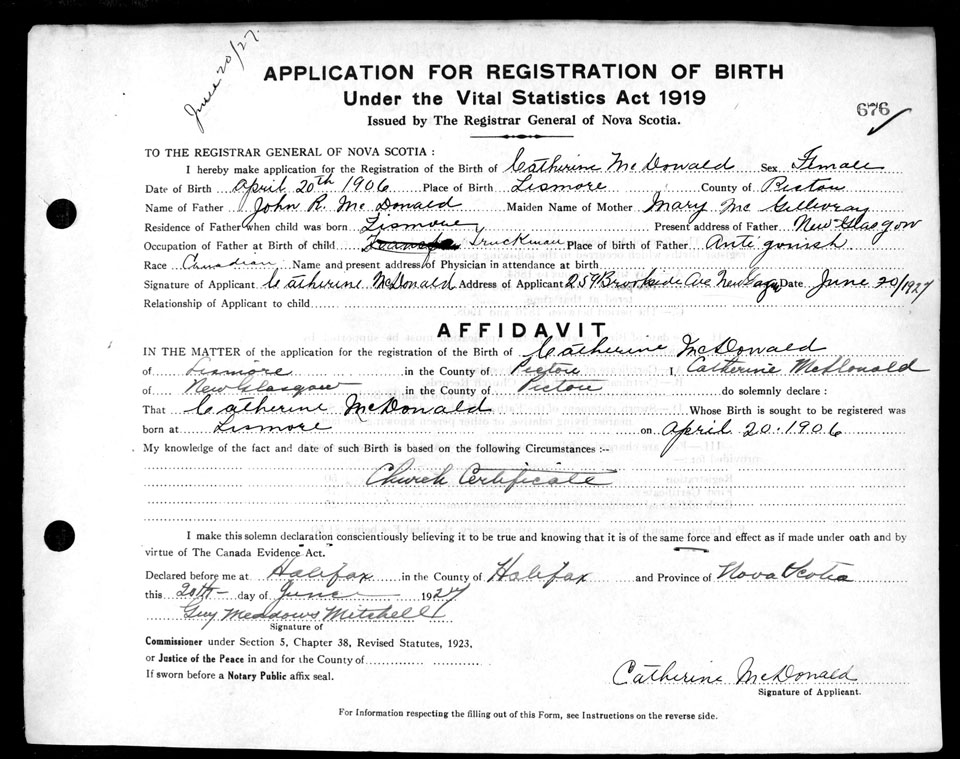 June 20/27.
APPLICATION FOR REGISTRATION OF BIRTH
Under the Vital Statistics Act 1919
Issued by The Registrar General of Nova Scotia.
676
TO THE REGISTRAR GENERAL OF NOVA SCOTIA:
I hereby make application for the Registration of the Birth of Catherine McDonald Sex Female
Date of Birth April 20th 1906 Place of Birth Lismore County of Pictou
Name of Father John R. McDonald Maiden Name of Mother Mary McGillivray
Residence of Father when child was born Lismore Present address of Father New Glasgow
Occupation of Father at Birth of child Truckman Place of birth of Father Antigonish
Race Canadian Name and present address of Physician in attendance at birth
Signature of Applicant Catherine McDonald Address of Applicant 259 Brookside Ave New Date June 20/1927
Relationship of Applicant to child
AFFIDAVIT
IN THE MATTER of the application for the registration of the Birth of Catherine McDonald
of Lismore in the County of Pictou I, Catherine McDonald
of New Glasgow in the County of Pictou do solemnly declare:
That Catherine McDonald Whose Birth is sought to be registered was
born at Lismore on April 20. 1906
My knowledge of the fact and date of such Birth is based on the following Circumstances :--
Church Certificate
I make this solemn declaration conscientiously believing it to be true and knowing that it is of the same force and effect as if made under oath and by
virtue of The Canada Evidence Act.
Declared before me at Halifax in the County of Halifax and Province of Nova Scotia
this 20th day of June 1927
Guy Meadows Mitchell
Signature of
Commissioner under Section 5, Chapter 38, Revised Statutes, 1923,
or Justice of the Peace in and for the County of
If sworn before a Notary Public affix seal.
Catherine McDonald
Signature of Applicant.
For Information respecting the filling out of this Form, see Instructions on the reverse side.